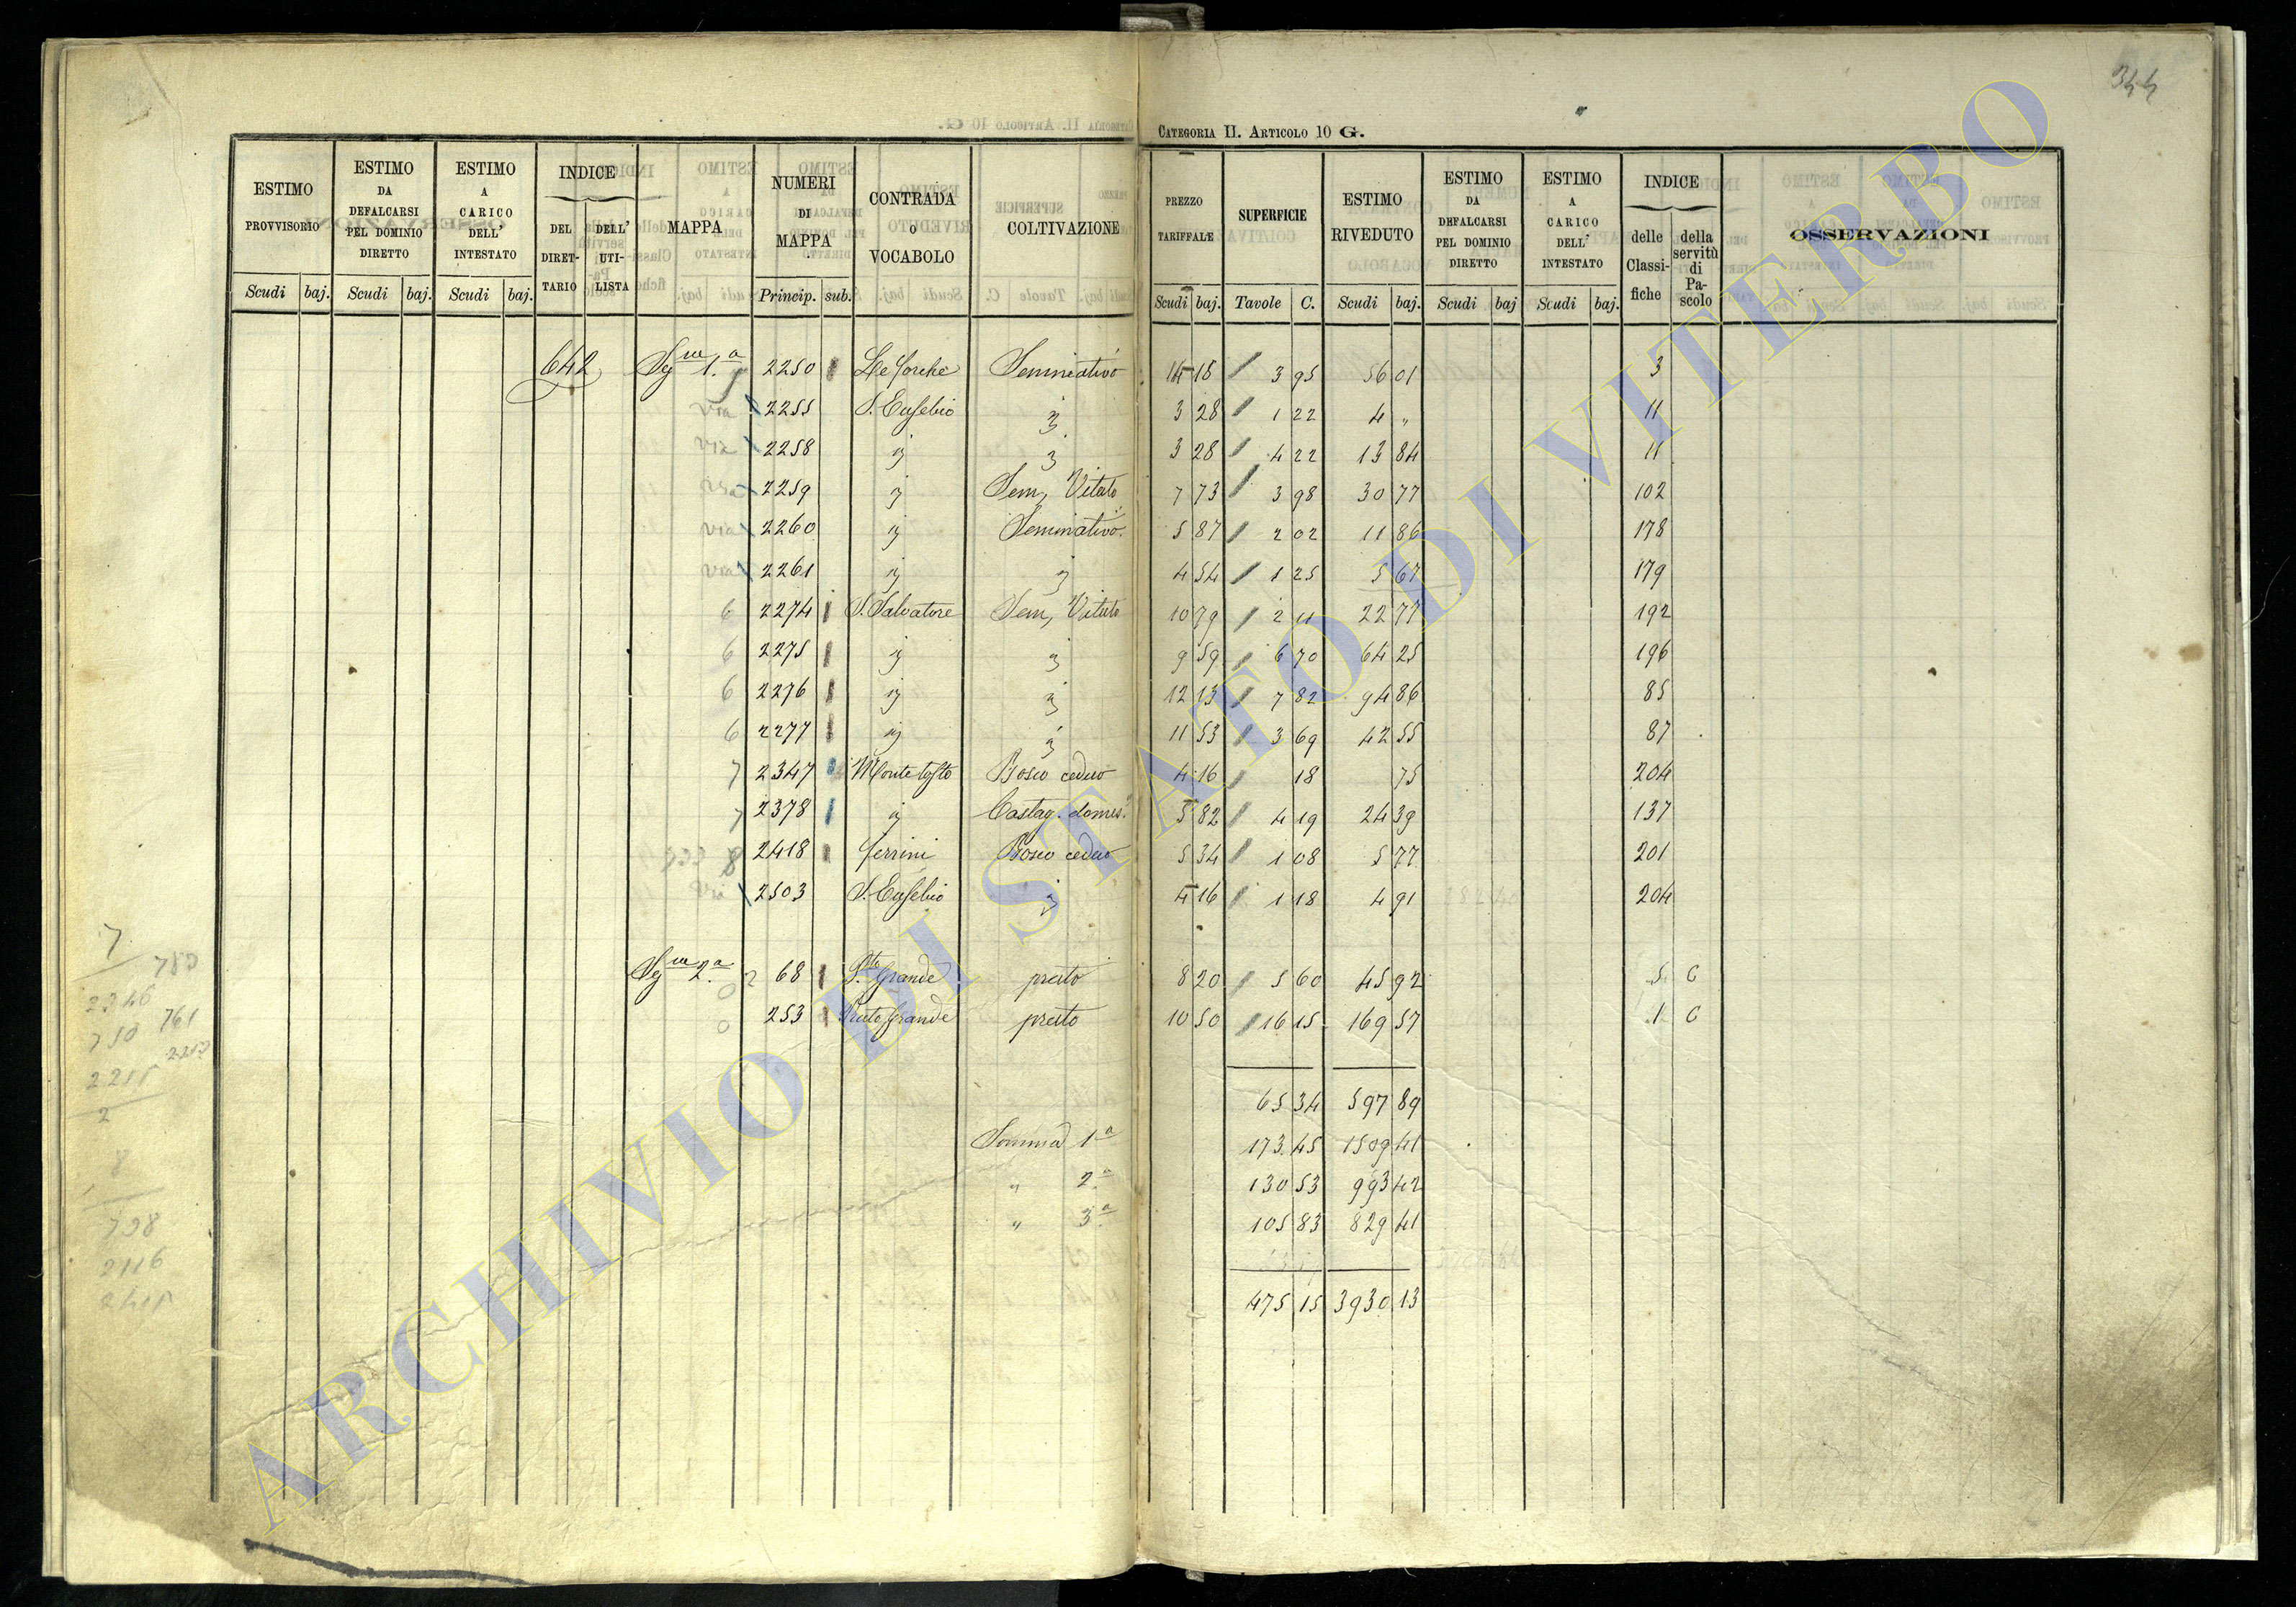 344
CATEGORIA II. ARTICOLO 10 G.
ESTIMO PROVVISORIO Scudi baj.
ESTIMO DA DEFALCARSI PEL DOMINIO DIRETTO Scudi baj.
ESTIMO A CARICO DELL' INTESTATO Scudi baj.
INDICE DEL DIRETTARIO DELL' UTILISTA
MAPPA
NUMERI DI MAPPA Princip. sub.
CONTRADA o VOCABOLO
COLTIVAZIONE
PREZZO TARIFFALE Scudi baj.
SUPERFICIE Tavole C.
ESTIMO RIVEDUTO Scudi baj.
ESTIMO DA DEFALCARSI PEL DOMINIO DIRETTO Scudi baj
ESTIMO A CARICO DELL' INTESTATO Scudi baj.
INDICE delle Classifiche della servitù di Pascolo
OSSERVAZIONI
642 Segue 1.a 2250 Le forche Seminativo 14 18 3 95 56 01 3
via 2255 S. Eusebio " 3 28 1 22 4 " 11
via 2258 " " 3 28 4 22 13 84 11
via 2259 " Sem, Vitato 7 73 3 98 30 77 102
via 2260 " Seminativo. 5 87 2 02 11 86 178
via 2261 " " 4 54 1 25 5 67 179
6 2274 S. Salvatore Sem, Vitato 10 79 2 11 22 77 192
6 2275 " " 9 59 6 70 64 25 196
6 2276 " " 12 13 7 82 94 86 85
6 2277 " " 11 53 3 69 42 55 87
7 2347 Monte tosto Bosco ceduo 4 16 18 75 204
7 2378 " Castag. domes. 5 82 4 19 24 39 137
8 2418 ferrini Bosco ceduo 5 34 1 08 5 77 201
2503 S. Eusebio " 4 16 1 18 4 91 204
Segue 2.a 68 P.to Grande prato 8 20 5 60 45 92 5 C
0 253 Prato Grande prato 10 50 16 15 169 57 1 C
65 34 597 89
Somma 1a 173 45 1509 41
" 2a 130 53 993 42
" 3a 105 83 829 41
475 15 3930 13
7
783
2346
710 761
2
8
738
2116
ARCHIVIO DI STATO DI VITERBO